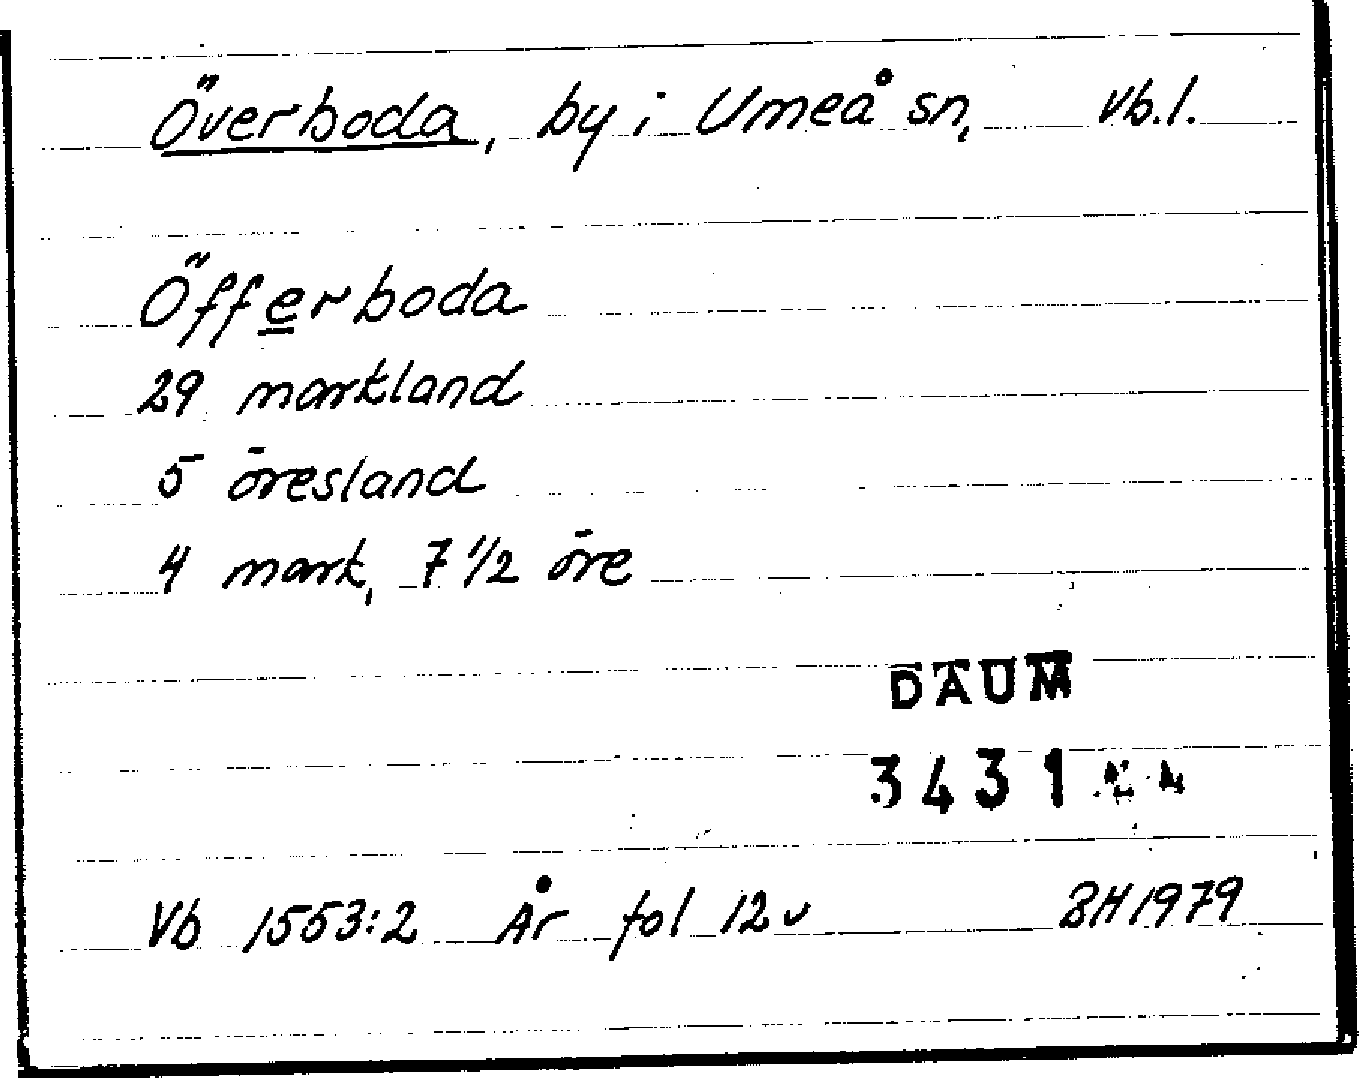 Överboda, by i Umeå sn, Vb.l.
Öfferboda
29 markland
5 öresland
4 mark, 7 1/2 öre
DAUM
3431
Vb 1553:2 År fol 12v BH1979